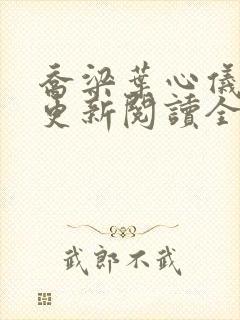 喬梁葉心儀
更新閱讀全
武郎不武